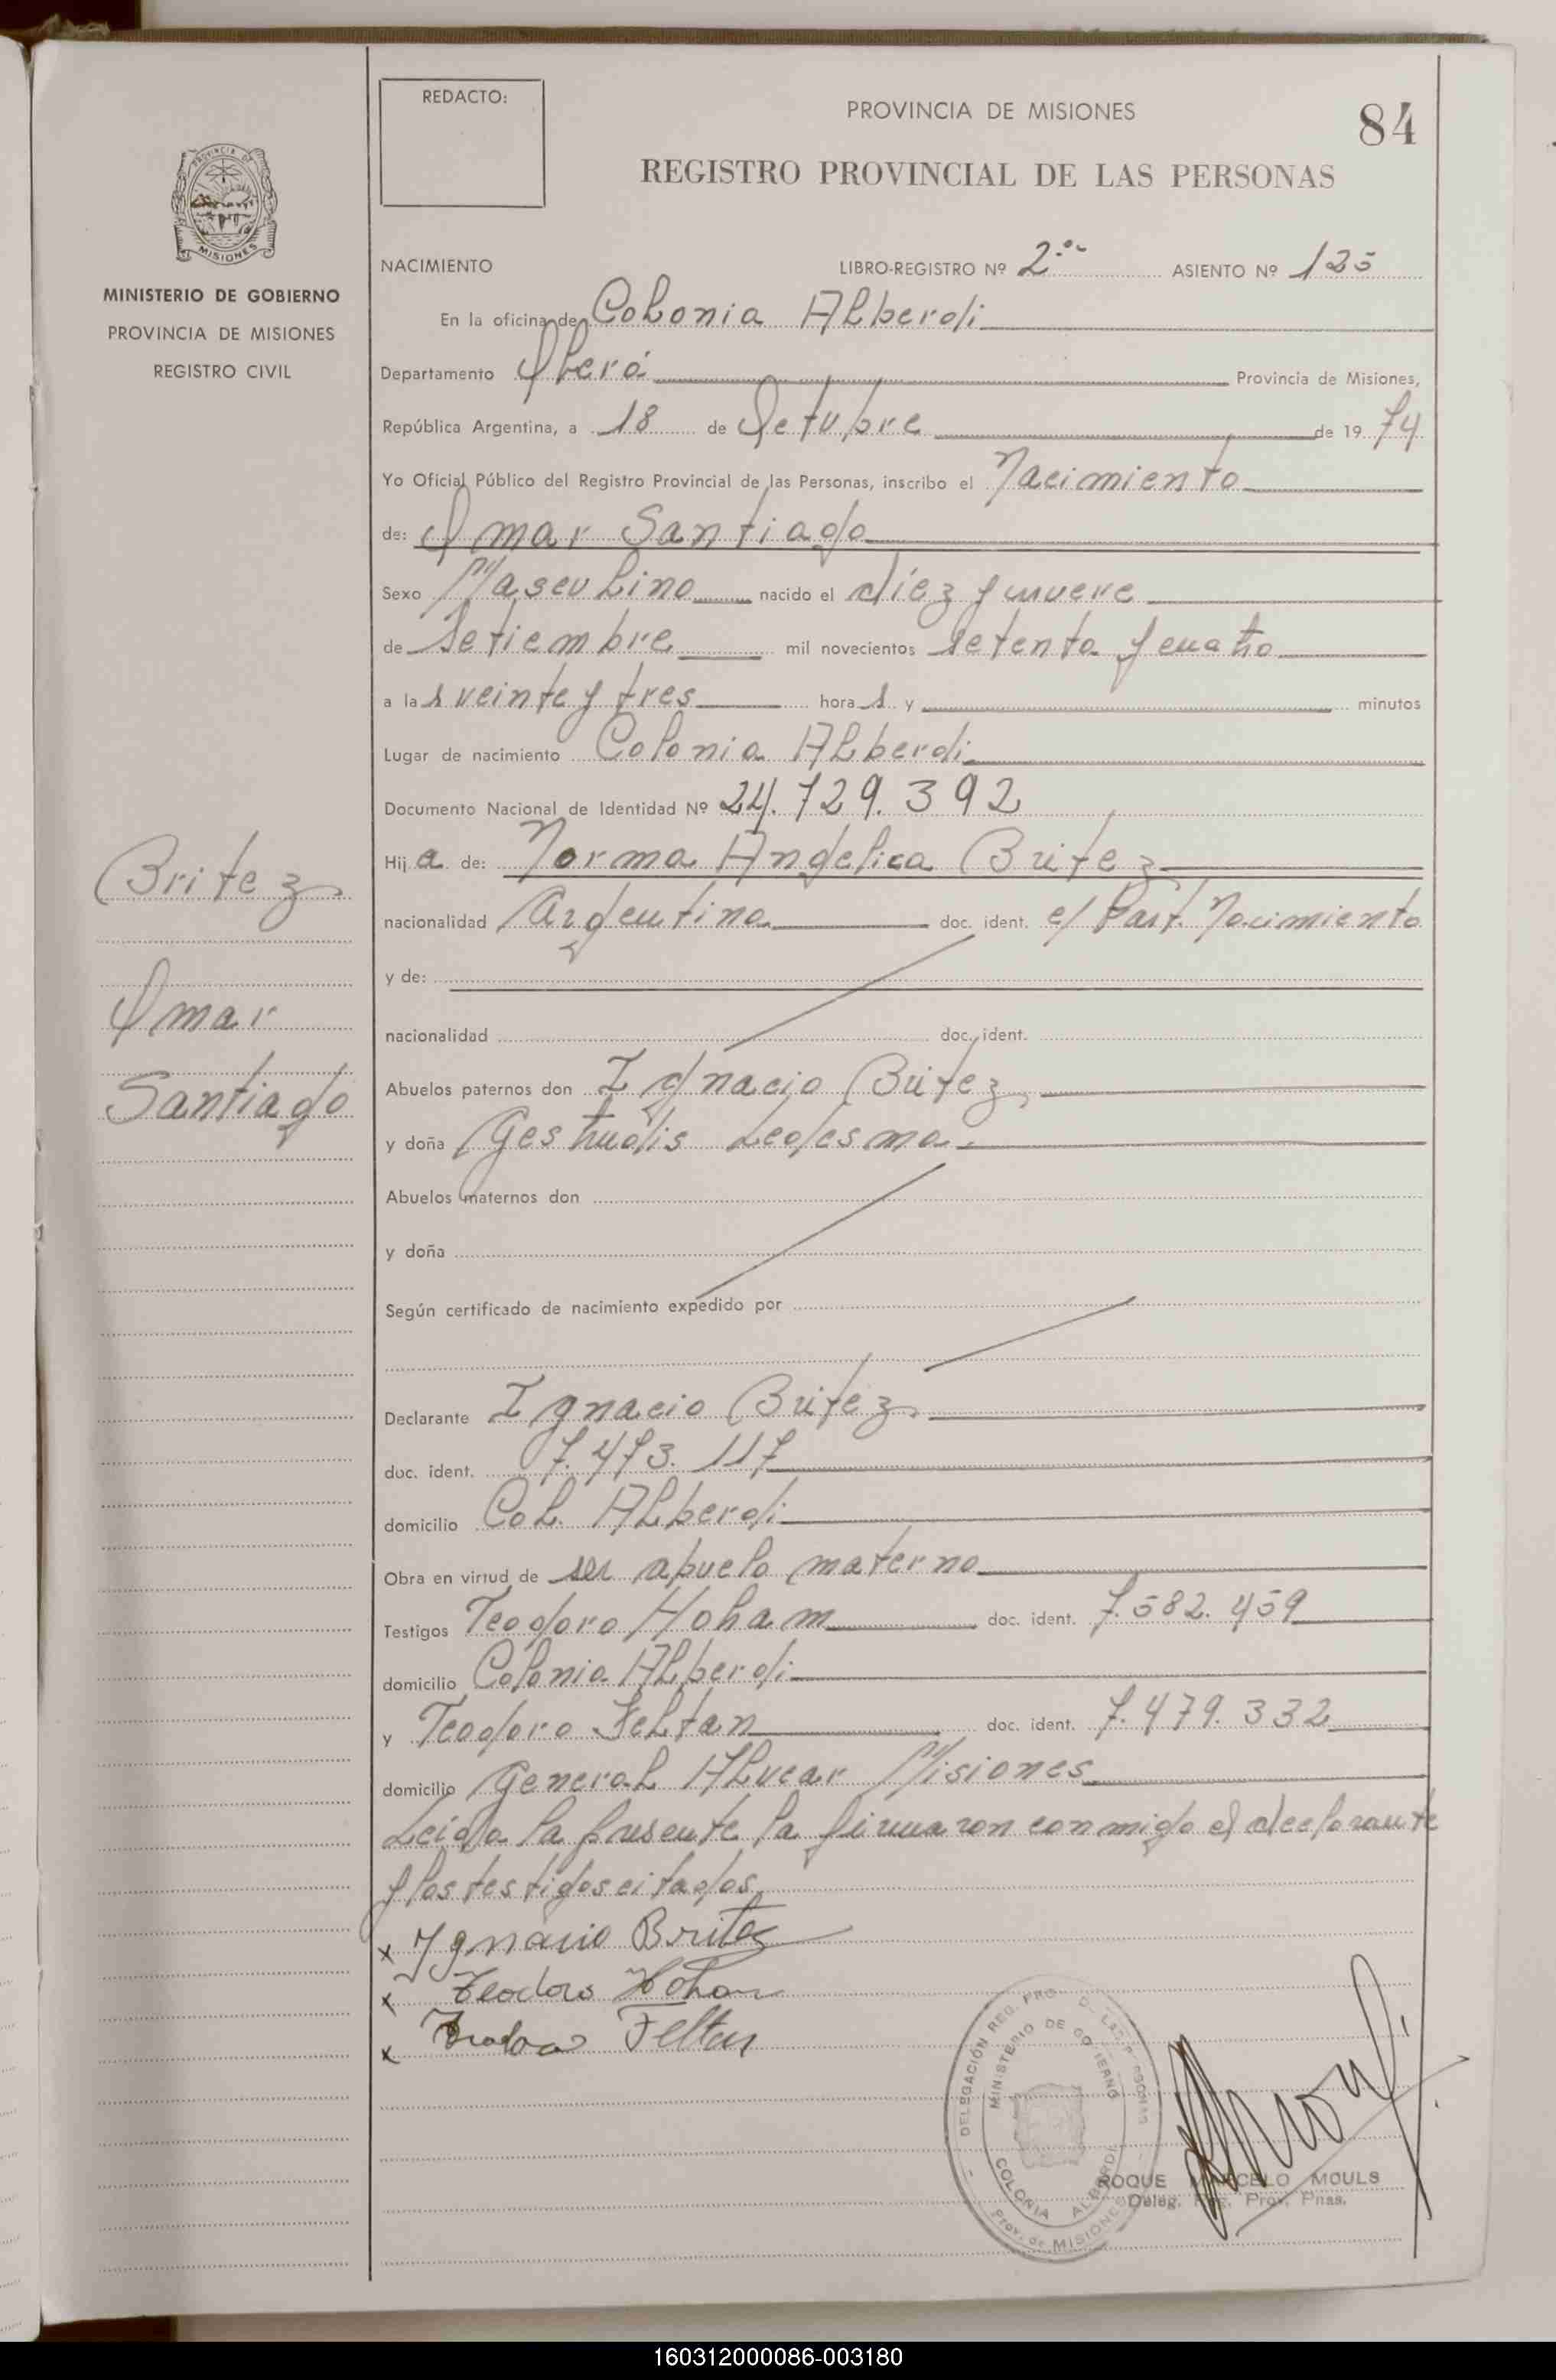 REDACTO:
PROVINCIA DE MISIONES
84
REGISTRO PROVINCIAL DE LAS PERSONAS
PROVINCIA DE
MISIONES
MINISTERIO DE GOBIERNO
PROVINCIA DE MISIONES
REGISTRO CIVIL
NACIMIENTO LIBRO-REGISTRO Nº 2º ASIENTO Nº 125
En la oficina de Colonia Alberdi
Departamento Oberá Provincia de Misiones,
República Argentina, a 18 de Octubre de 19 74
Yo Oficial Público del Registro Provincial de las Personas, inscribo el Nacimiento
de: Omar Santiago
Sexo Masculino nacido el diez y nueve
de Setiembre mil novecientos setenta y cuatro
a la s veinte y tres hora s y minutos
Lugar de nacimiento Colonia Alberdi
Documento Nacional de Identidad Nº 24.729.392
Britez
Hij a de: Norma Angelica Britez
nacionalidad Argentina doc. ident. c/ Part. Nacimiento
y de:
Omar
nacionalidad doc. ident.
Santiago
Abuelos paternos don Ignacio Britez
y doña Gestrudis Ledesma
Abuelos maternos don
y doña
Según certificado de nacimiento expedido por
Declarante Ignacio Britez
doc. ident. 7.473.117
domicilio Col. Alberdi
Obra en virtud de ser abuelo materno
Testigos Teodoro Hoham doc. ident. 7.582.459
domicilio Colonia Alberdi
y Teodoro Feltan doc. ident. 7.479.332
domicilio General Alvear Misiones
Leida la presente la firmaron conmigo el declarante
y los testigos citados
x Ygnacio Britez
x Teodoro Hohan
x Teodoro Feltan
DELEGACIÓN REG. PRO D. LAS P RSONAS
MINISTERIO DE GO IERNO
COLONIA ALBERDI
Prov. de MISIONES
ROQUE MARCELO MOULS
Deleg. Reg. Prov. Pnas.
160312000086-003180